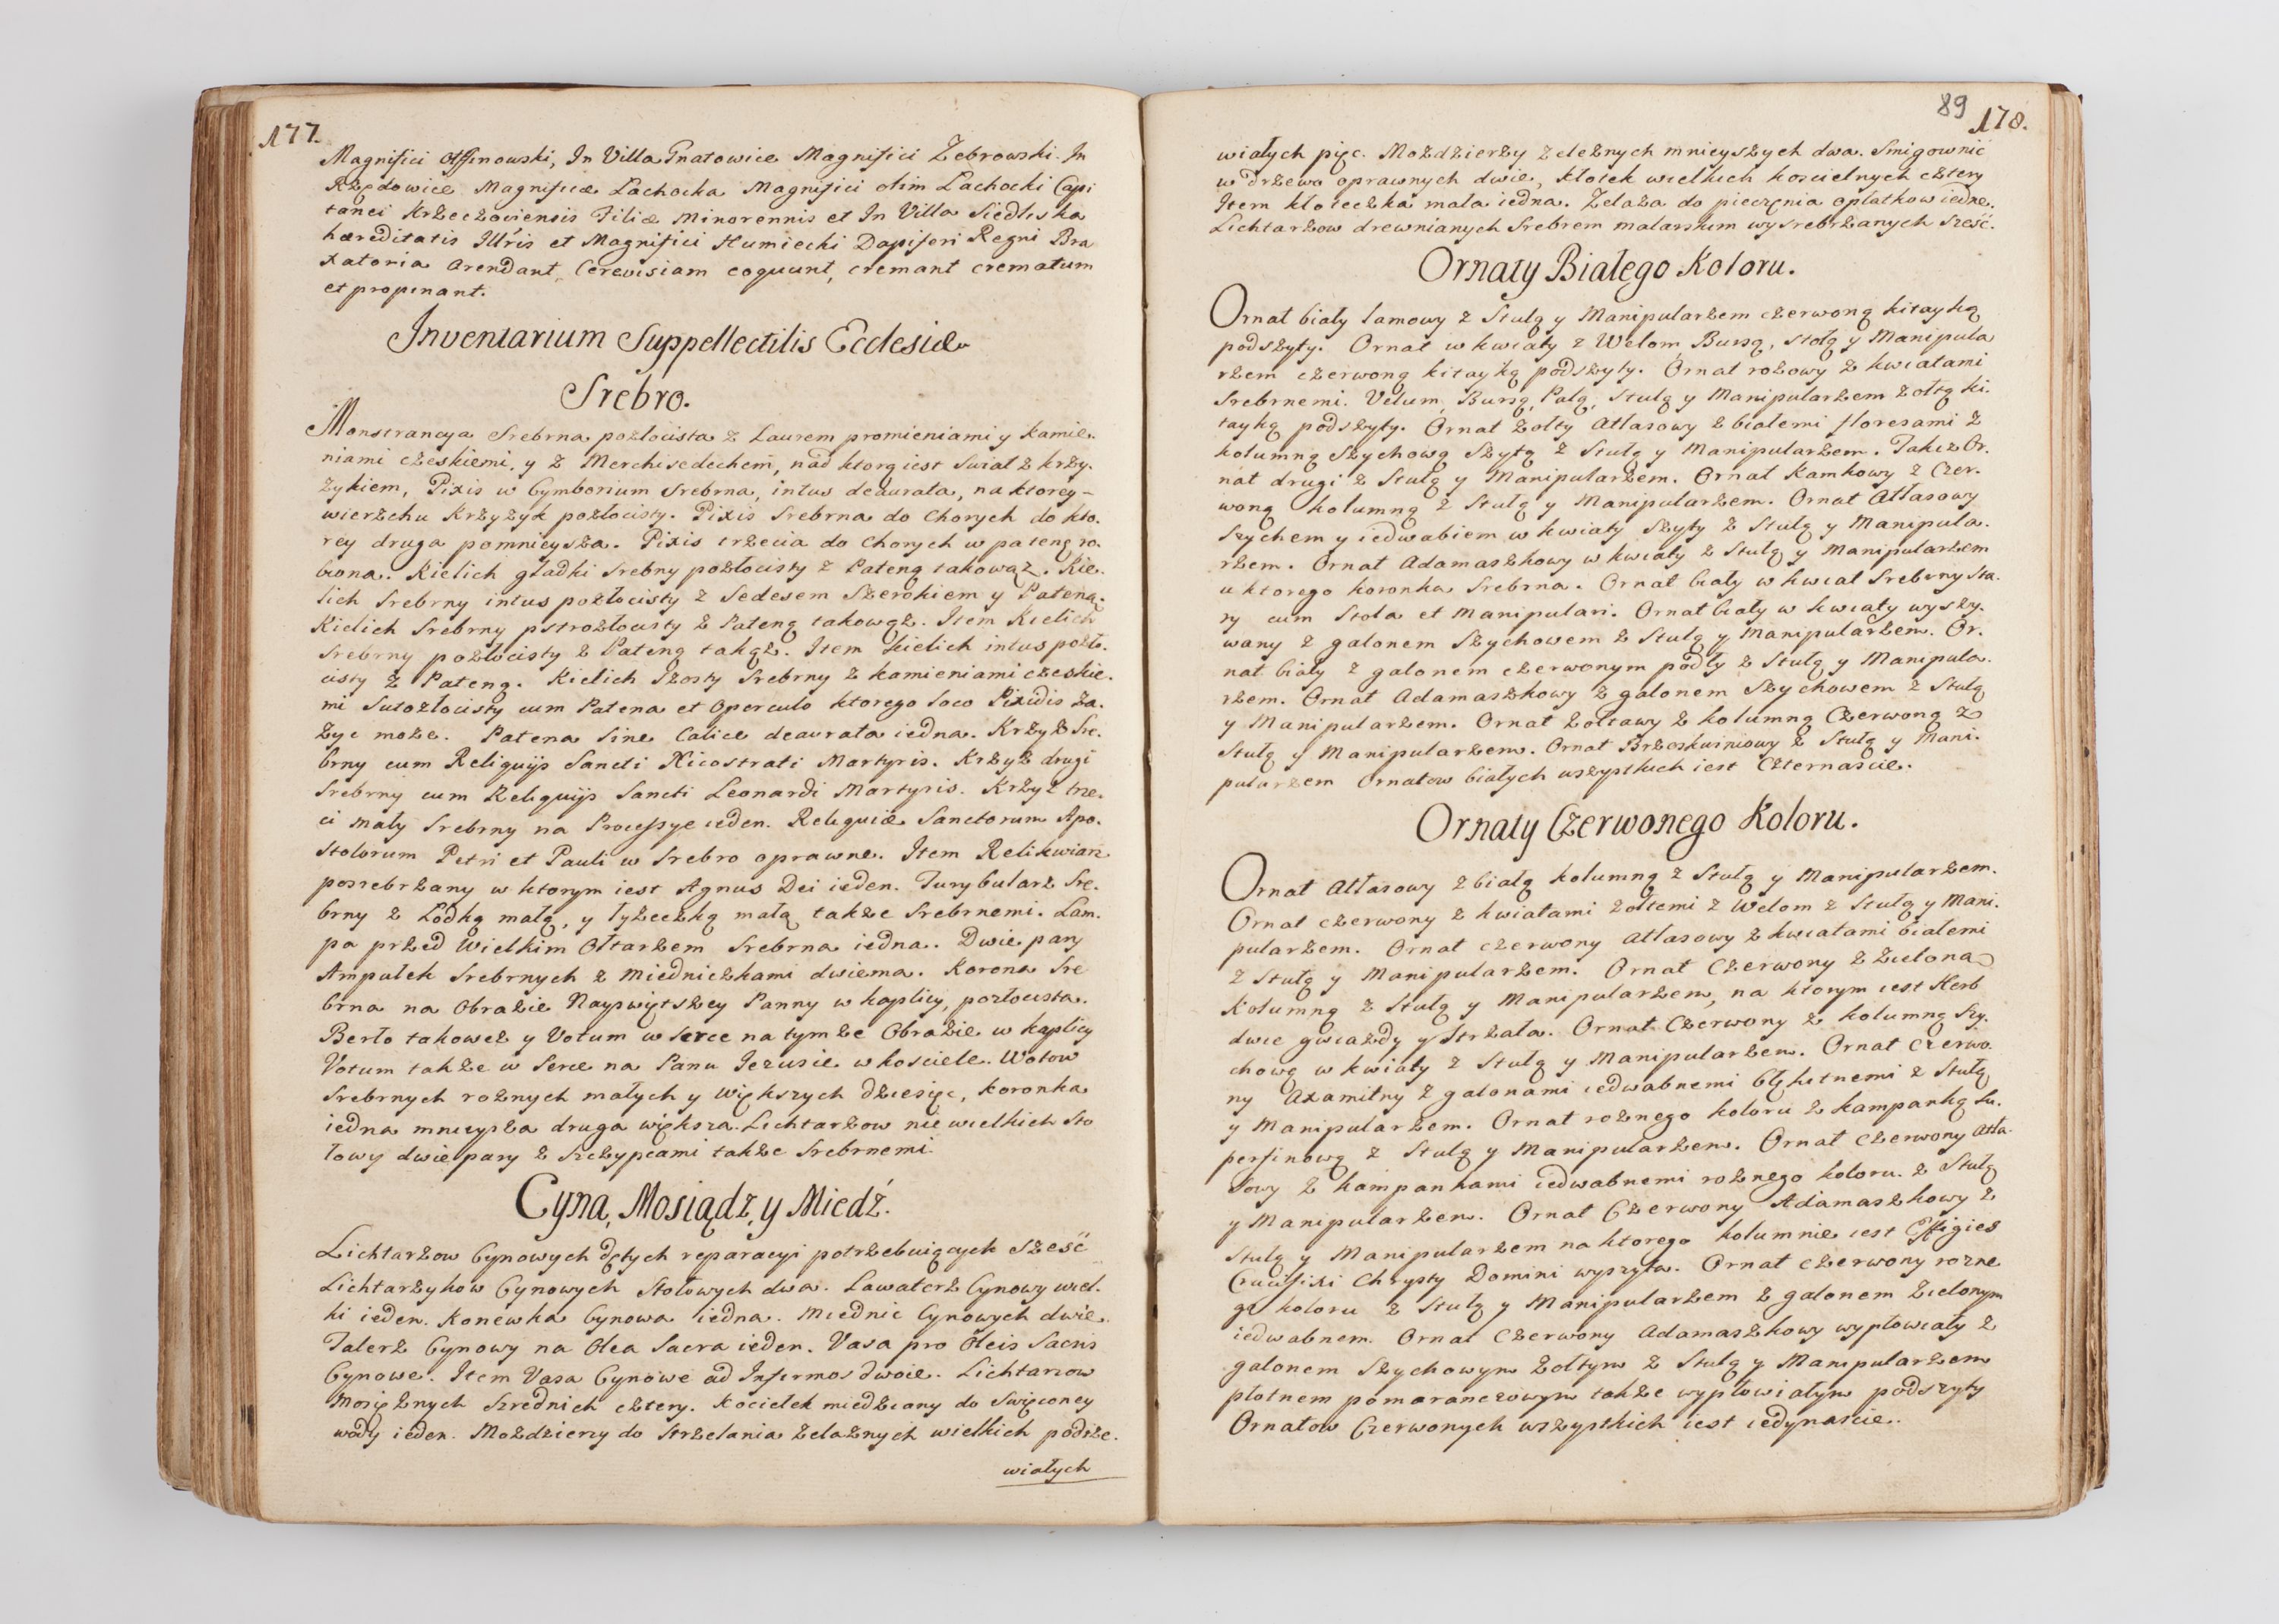 177.
Magnifici Ossinowski, In Villa Gnatowice Magnifici Zebrowski. In
Rzędowice Magnificæ Lachocka Magnifici olim Lachocki Capi
tanei Krzeczoviensis Filiæ Minorennis et In Villa Siedliska
hæreditatis Illris et Magnifici Humiecki Dapiferi Regni Bra
xatoria Arendant, Cerevisiam coquunt, cremant crematum
et propinant.
Inventarium Suppellectilis Ecclesiæ
Srebro.
Monstrancya Srebrna pozlocista z Laurem promieniami y Kamie-
niami czeskiemi, y z Merchisedechem, nad ktorą iest Swiat z krzy-
zykiem, Pixis w Cymborium Srebrna, intus deaurata, na ktorey -
wierzchu Krzyzyk pozłocisty. Pixis Srebrna do Chorych do kto-
rey druga pomnieysza. Pixis trzecia do Chorych w patenę ro-
biona. Kielich gładki Srebny pozłocisty z Pateną takowąz. Kie-
lich Srebrny intus pozłocisty z Sedesem Szerokiem y Pateną.
Kielich Srebrny pstrozłocisty z Pateną takowąz. Item Kielich
Srebrny pozłocisty z Pateną takąz. Item kielich intus pozło-
cisty z Pateną. Kielich Szosty Srebrny z kamieniami czeskie-
mi Sutozłocisty cum Patena et Operculo ktorego loco Pixidis za-
zyc moze. Patena Sine Calice deaurata iedna. Krzyz Sre-
brny cum Reliquijs Sancti Nicostrati Martyris. Krzyz drugi
Srebrny cum Reliquijs Sancti Leonardi Martyris. Krzyz trze-
ci mały Srebrny na Processye ieden. Reliquiæ Sanctorum Apo-
stolorum Petri et Pauli w Srebro oprawne. Item Relikwiarz
posrebrzany w ktorym iest Agnus Dei ieden. Turybularz Sre-
brny z Łodką małą, y łyzeczką małą takze Srebrnemi. Lam-
pa przed Wielkim Ołtarzem Srebrna iedna. Dwie pary
Ampułek Srebrnych z miedniczkami dwiema. Korona Sre
brna na Obrazie Nayswiętszey Panny w kaplicy, pozłocista.
Berło takowez y Votum w Serce na tymze Obrazie w kaplicy
Votum takze w Serce na Panu Jezusie w kosciele. Wotow
Srebrnych roznych małych y Większych dziesięc, koronka
iedna mnieysza druga większa. Lichtarzow nie wielkich Sto
łowy dwie pary z Szczypcami takze Srebrnemi.
Cyna, Mosiądz, y Miedź.
Lichtarzow Cynowych dętych reparacyi potrzebuiących Sześć
Lichtarzykow Cynowych Stołowych dwa. Lawaterz Cynowy wiel-
ki ieden. Konewka Cynowa iedna. Miednic Cynowych dwie.
Talerz Cynowy na Olea Sacra ieden. Vasa pro Oleis Sacris
Cynowe. Item Vasa Cynowe ad Infirmos dwoie. Lichtarzow
Mosięznych Szrednich cztery. Kociełek miedziany do Swięconey
wody ieden. Mozdzierzy do Strzelania zelaznych wielkich podrze-
wiałych
89
178.
wiałych pięc. Mozdzierzy zeleznych mnieyszych dwa. Smigownić
w drzewo oprawnych dwie, kłotek wielkich koscielnych cztery
Item kłoteczka mala iedna. Zelaza do pieczęnia opłatkow iedne.
Lichtarzow drewnianych Srebrem malarskim wysrebrzanych Sześć.
Ornaty Białego Koloru.
Ornat biały lamowy z Stułą y Manipularzem czerwoną kitayką
podszyty. Ornat w kwiaty z Welom, Bursą, stołą y Manipula
rzem czerwoną kitayką podszyty. Ornat rozowy z kwiatami
Srebrnemi. Velum, Bursą, Palą, Stułą y Manipularzem zołtą ki-
tayką podszyty. Ornat zołty Atlasowy z białemi floresami z
kolumną Szychową Szytą z Stułą y Manipularzem. Takiz Or-
nat drugi z Stułą y Manipularzem. Ornat Kamkowy z Czer-
woną kolumną z Stułą y Manipularzem. Ornat Atłasowy
Szychem y iedwabiem w kwiaty Szyty z Stułą y Manipula-
rzem. Ornat Adamaszkowy w kwiaty z Stułą y Manipularzem
u ktorego koronka Srebrna. Ornat biały w kwiat Srebrny Sta-
ry cum Stola et Manipulari. Ornat biały w kwiaty wyszy-
wany z galonem Szychowem z Stułą y Manipularzem. Or-
nat biały z galonem czerwonym podły z Stułą y Manipula-
rzem. Ornat Adamaszkowy z galonem Szychowem z Stułą
y Manipularzem. Ornat zołtawy z kolumną Czerwoną z
Stułą y Manipularzem. Ornat Brzoskwiniowy z Stułą y Mani-
pularzem Ornatow białych wszystkich iest Czternascie.
Ornaty Czerwonego Koloru.
Ornat Atłasowy z białą kolumną z Stułą y Manipularzem.
Ornat czerwony z kwiatami zołtemi z Welom z Stułą y Mani-
pularzem. Ornat czerwony Atlasowy z kwiatami białemi
z Stułą y Manipularzem. Ornat Czerwony z Zielona
Kolumną z Stułą y Manipularzem, na ktorym iest Herb
dwie gwiazdy y Strzała. Ornat Czerwony z kolumną Szy-
chową w kwiaty z Stułą y Manipularzem. Ornat Czerwo-
ny Axamitny z galonami iedwabnemi błękitnemi z Stułą
y Manipularzem. Ornat roznego koloru z kampanką Su-
perfinową z Stułą y Manipularzem. Ornat czerwony Atła-
sowy z kampankami iedwabnemi roznego koloru. z Stułą
y Manipularzem. Ornat Czerwony Adamaszkowy z
Stułą y Manipularzem na ktorego kolumnie iest Effigies
Crucifixi Chrysty Domini wyszyta. Ornat czerwony rozne
go koloru z Stułą y Manipularzem z galonem Zielonym
iedwabnem. Ornat Czerwony Adamaszkowy wypłowiały z
galonem Szychowym zołtym z Stułą y Manipularzem
płotnem pomaranczowym takze wypłowiałym podszyty
Ornatow Czerwonych wszystkich iest iedynascie.